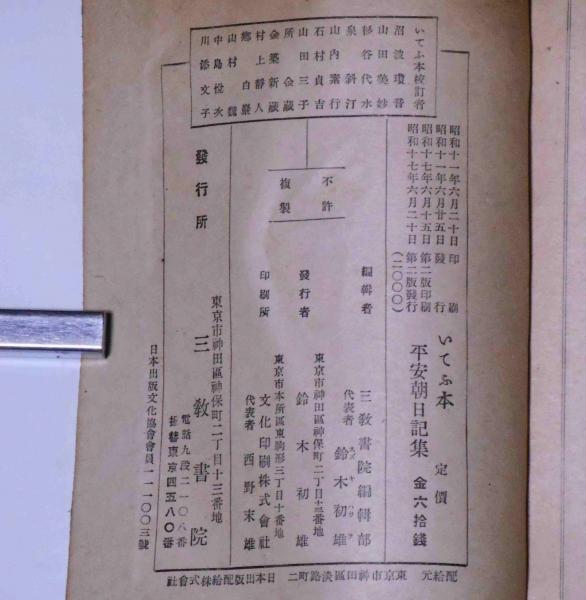 いてふ本校訂者
沼波瓊音
山田美妙
杉谷代水
泉斜汀
山内素行
石村貞吉
山田三子
所金蔵
金築新蔵
村上靜人
鄕白巖
山村魏
中島悅次
川添文子
昭和十一年六月二十日印刷
昭和十一年六月廿五日發行
昭和十七年六月十五日第二版印刷
昭和十七年六月二十日第二版發行
(二〇〇〇)
いてふ本
平安朝日記集
定價
金六拾錢
不許
複製
編輯者
三敎書院編輯部
代表者 鈴木初雄
發行者
東京市神田區神保町二丁目十三番地
鈴木初雄
印刷所
東京市本所區東駒形三丁目十番地
文化印刷株式會社
代表者 西野末雄
發行所
東京市神田區神保町二丁目十三番地
三敎書院
電話九段二一〇八番
振替東京四五八〇番
日本出版文化協會會員一一一〇〇三號
配給元 東京市神田區淡路町二 日本出版配給株式會社